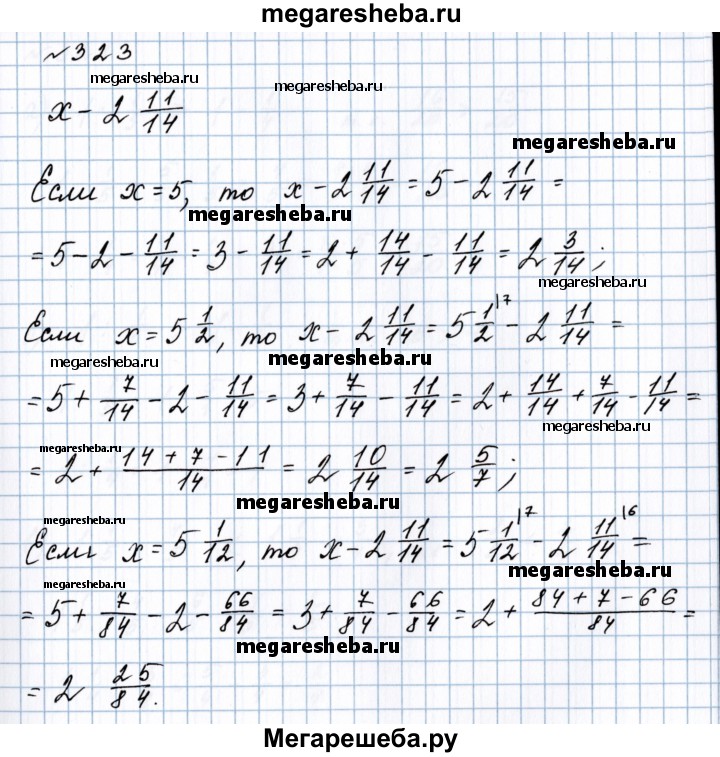 megaresheba.ru
№323
megaresheba.ru
x - 2 11/14
megaresheba.ru
Если x = 5, то x - 2 11/14 = 5 - 2 11/14 =
megaresheba.ru
= 5 - 2 - 11/14 = 3 - 11/14 = 2 + 14/14 - 11/14 = 2 3/14;
megaresheba.ru
Если x = 5 1/2, то x - 2 11/14 = 5 1/2 |7 - 2 11/14 =
megaresheba.ru megaresheba.ru
= 5 + 7/14 - 2 - 11/14 = 3 + 7/14 - 11/14 = 2 + 14/14 + 7/14 - 11/14 =
megaresheba.ru
megaresheba.ru
= 2 + (14 + 7 - 11)/14 = 2 10/14 = 2 5/7;
megaresheba.ru
megaresheba.ru
Если x = 5 1/12, то x - 2 11/14 = 5 1/12 |7 - 2 11/14 |6 =
megaresheba.ru
megaresheba.ru
= 5 + 7/84 - 2 - 66/84 = 3 + 7/84 - 66/84 = 2 + (84 + 7 - 66)/84 =
megaresheba.ru
= 2 25/84.
Мегарешеба.ру